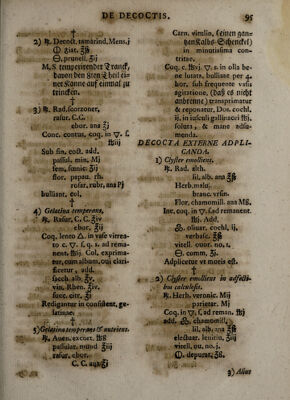 DE DECOCTIS. 95
2) ℞. Decoct. tamarind. Mens. j
prunell. ʒij
M. S. temperirender Tranck,
davon den 8ten Theil ei-
ner Kanne auf einmal zu
trincken.
3) ℞. Rad. scorzoner.
rasur. C. C.
ebor. ana ʒj
Conc. contus. coq. in ▽. s.
Sub fin. coct. add.
passul. min. Mj
sem. fœnic. ʒij
flor. papav. rh.
rosar. rubr. ana Pj
bulliant, col.
4) Gelatina temperans.
℞. Rasur. C. C. ℥iv
ebor. ℥ij
Coq. lento △. in vase vitrea-
to c. ▽. s. q. ad rema-
nent. ℔ij. Col. exprima-
tur, cum album. ovi clari-
ficetur, add.
sacch. alb. ℥v.
vin. Rhen. ℥iv.
succ. citr. ℥j
Redigantur in consistent. ge-
latinae.
5) Gelatina temperans & nutriens.
℞. Aven. excort. ℔ß
passular. mund. ℥iij
rasur. ebor.
C. C. ana ℥j
Carn. vitulin. (einen gan-
tzen Kalbs-Schenckel)
in minutissima con-
tritae.
Coq. c. ℔vj. ▽. s. in olla be-
ne lutata, bulliant per 4.
hor. sub frequente vasis
agitatione, (daß es nicht
anbrenne) transprimatur
& reponatur. Dos. cochl.
ij. in jusculi gallinacei
soluta, & mane adsu-
menda.
DECOCTA EXTERNE ADPLI-
CANDA.
1) Clyster emolliens.
℞. Rad. alth.
lil. alb. ana ℥ß
Herb. malv.
branc. ursin.
Flor. chamomill. ana Mß
Inc. coq. in ▽. s. ad remanent.
℔j. Add.
olivar. cochl. ij.
verbasc. ℥ß
vitell. ovor. no. j.
comm. ʒj.
Adplicetur vt moris est.
2) Clyster emolliens in adfecti-
bus calculosis.
℞. Herb. veronic. Mij
parietar. Mj
Coq. in ▽. s. ad reman. ℔j
add. chamomill.
lil. alb. ana ℥ß
electuar. lenitiv. ℥ij
vitell. ov. no. j.
depurat. ʒß.
3) Alius